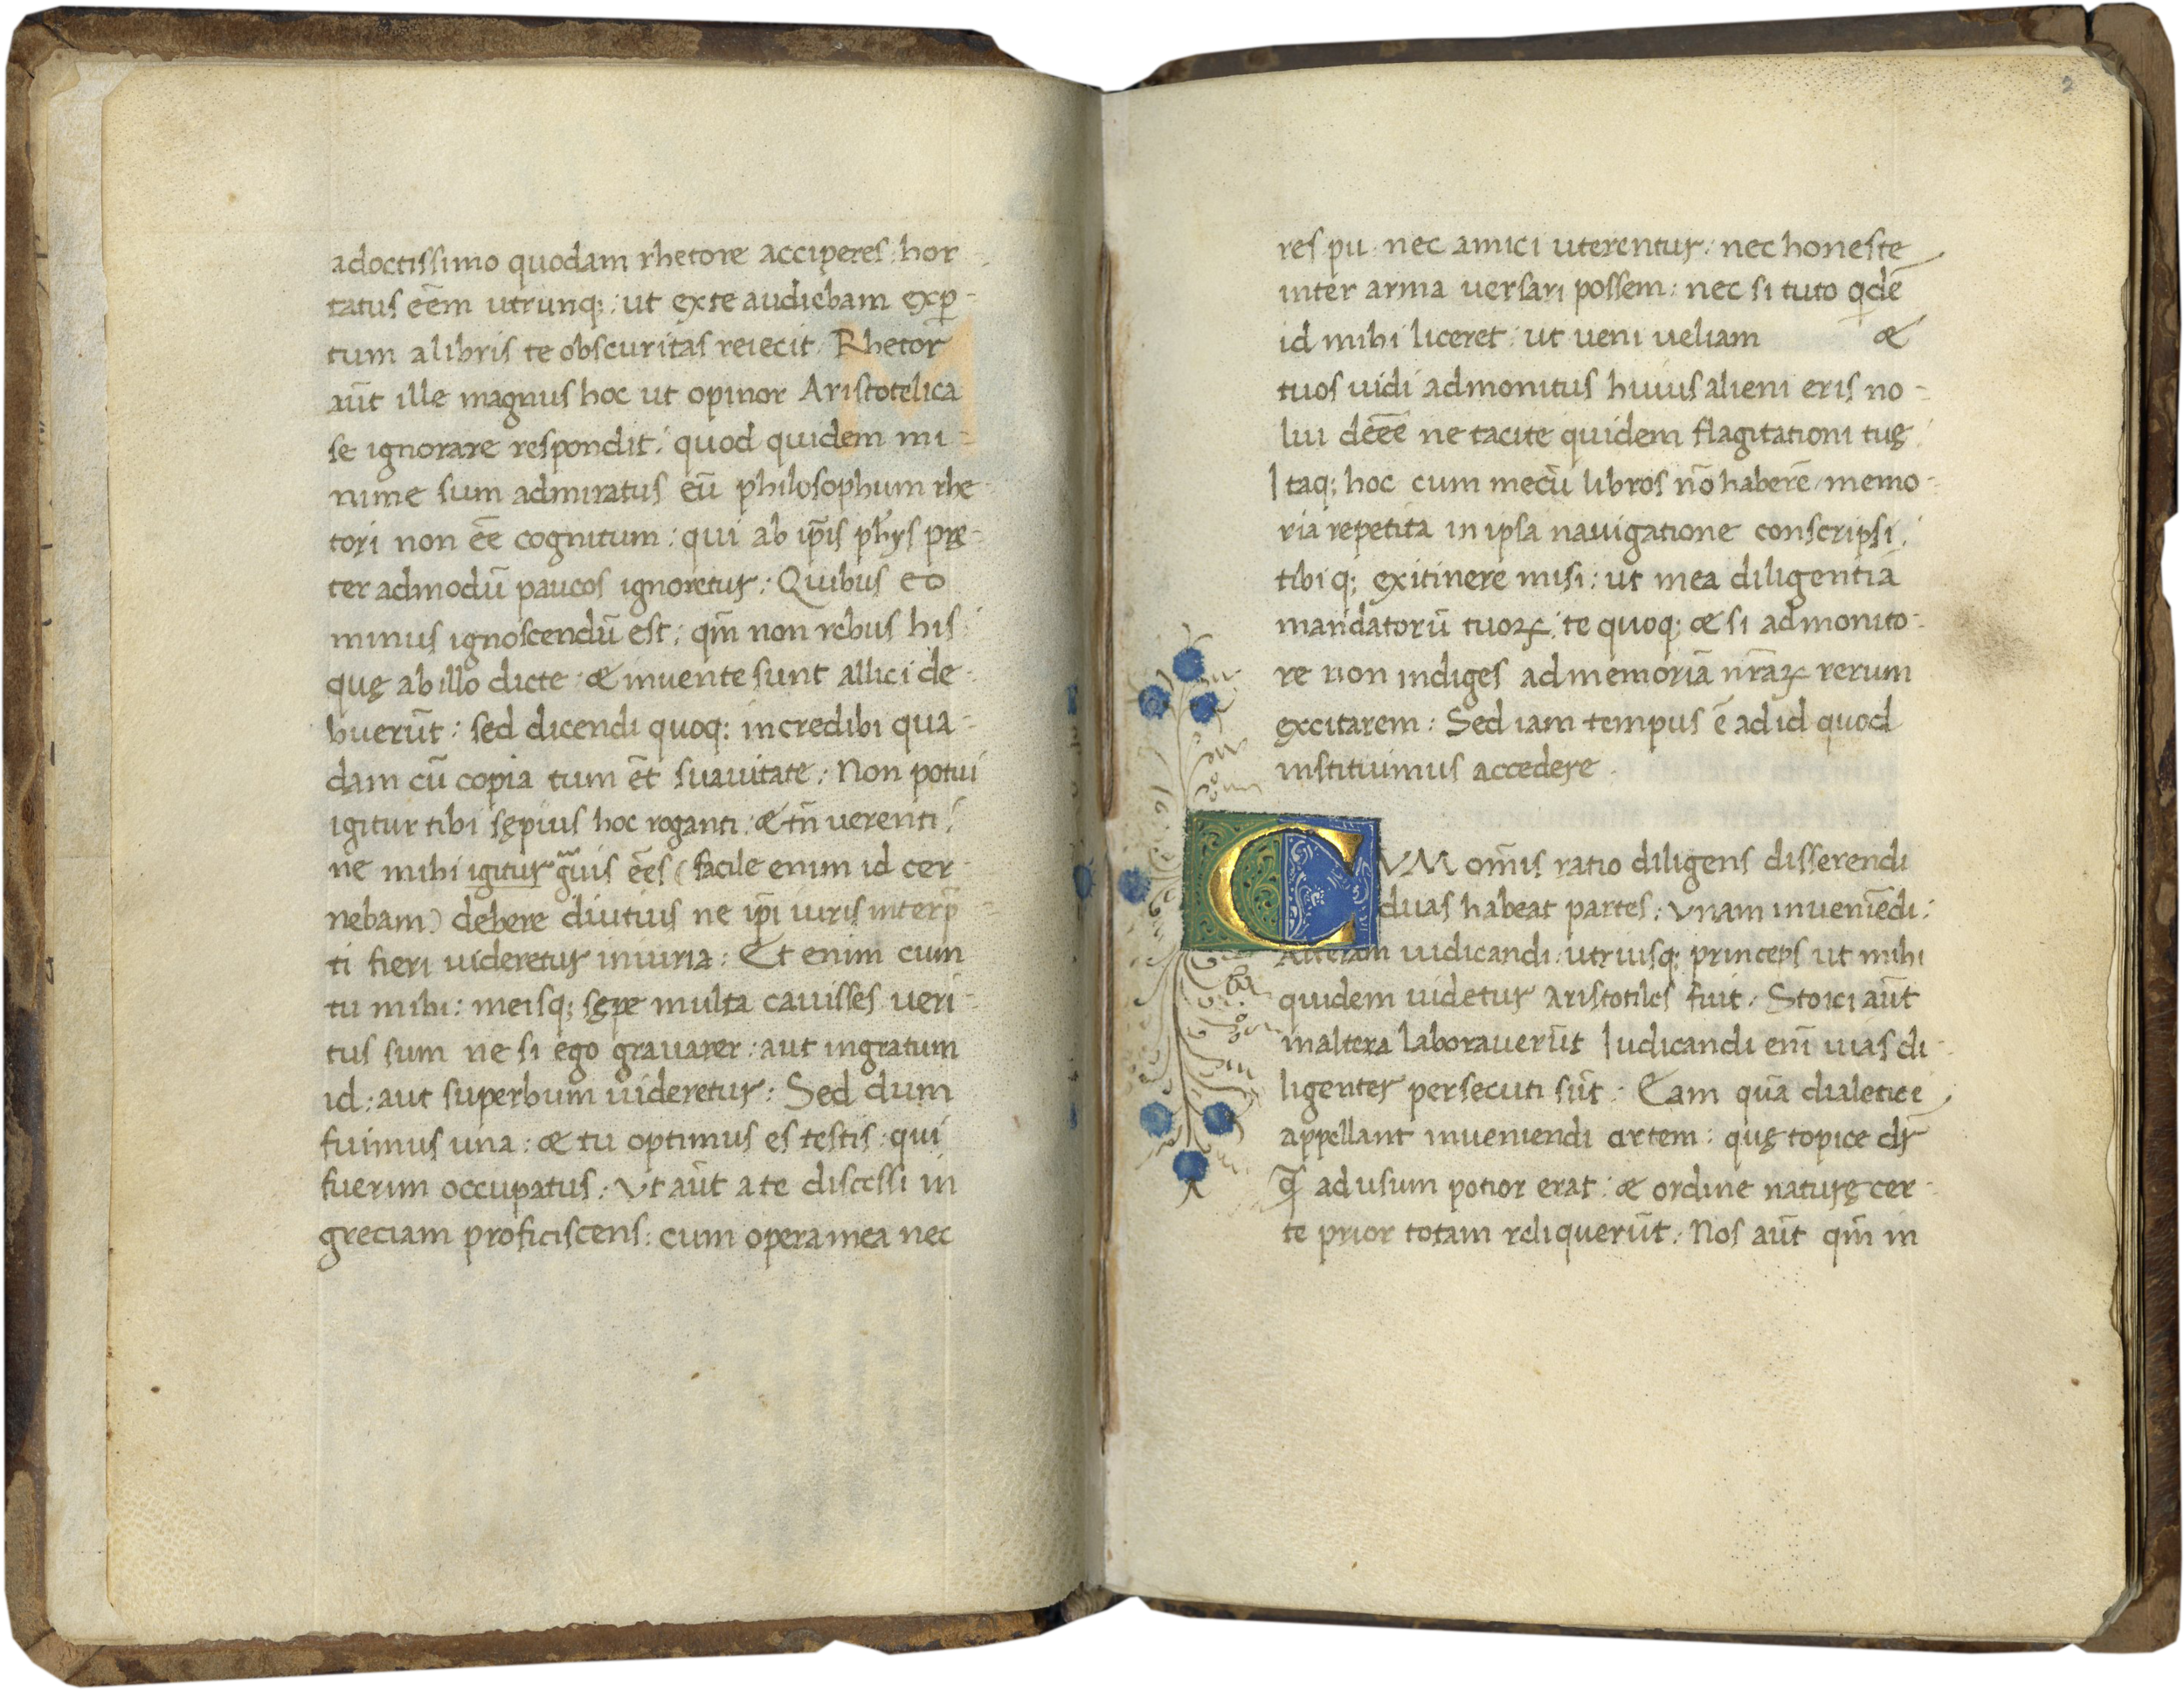 adoctissimo quodam rhetore acciperes: hor-
tatus eēm utrunq;: ut ex te audiebam exp̱-
tum a libris te obscuritas reiecit. Rhetor
aūt ille magnus hoc ut opinor Aristotelica
se ignorare respondit: quod quidem mi-
nime sum admiratus eū philosophum rhe-
tori non eē cognitum: qui ab ip̄is ph̄ys prę-
ter admodū paucos ignoretur: Quibus eo
minus ignoscendū est: qm̄ non rebus his
quę ab illo dicte & inuente sunt allici de-
buerūt: sed dicendi quoq: incredibi qua-
dam cū copia tum ēt suauitate: Non potui
igitur tibi sępius hoc roganti: & tn̄ uerenti:
ne mihi igitur gͣuis eēs (facile enim id cer-
nebam) debere diutius ne ip̄i iuris interp̄-
ti fieri uideretur iniuria: Et enim cum
tu mihi: meisq; sępe multa cauisses ueri-
tus sum ne si ego grauarer: aut ingratum
id: aut superbum uideretur: Sed dum
fuimus una: & tu optimus es testis: qui
fuerim occupatus: Vt aūt a te discessi in
greciam proficiscens: cum opera mea nec
2
res pu. nec amici uterentur: nec honeste
inter arma uersari possem: nec si tuto qdē
id mihi liceret: ut ueni ueliam &
tuos uidi admonitus huius alieni eris no-
lui deēē ne tacite quidem flagitationi tuę:
Itaq; hoc cum mecū libros nō haberē memo-
ria repetita in ipsa nauigatione conscripsi:
tibi q; ex itinere misi: ut mea diligentia
mandatorū tuoꝝ: te quoq; & si admonito-
re non indiges ad memoriā nr̄aꝝ rerum
excitarem: Sed iam tempus ē ad id quod
instituimus accedere.
CVM om̄is ratio diligens disserendi
duas habeat partes: vnam inueniēdi:
Alteram iudicandi: utriusq; princeps ut mihi
quidem uidetur aristotiles fuit: Stoici aūt
in altera laborauerūt Iudicandi eni̅ uias di-
ligenter persecuti sūt: Eam quā dialetice
appellant inueniendi artem: quę topice dr̄
q̄ ad usum potior erat: & ordine naturę cer-
te prior totam reliquerūt: Nos aūt qm̄ in